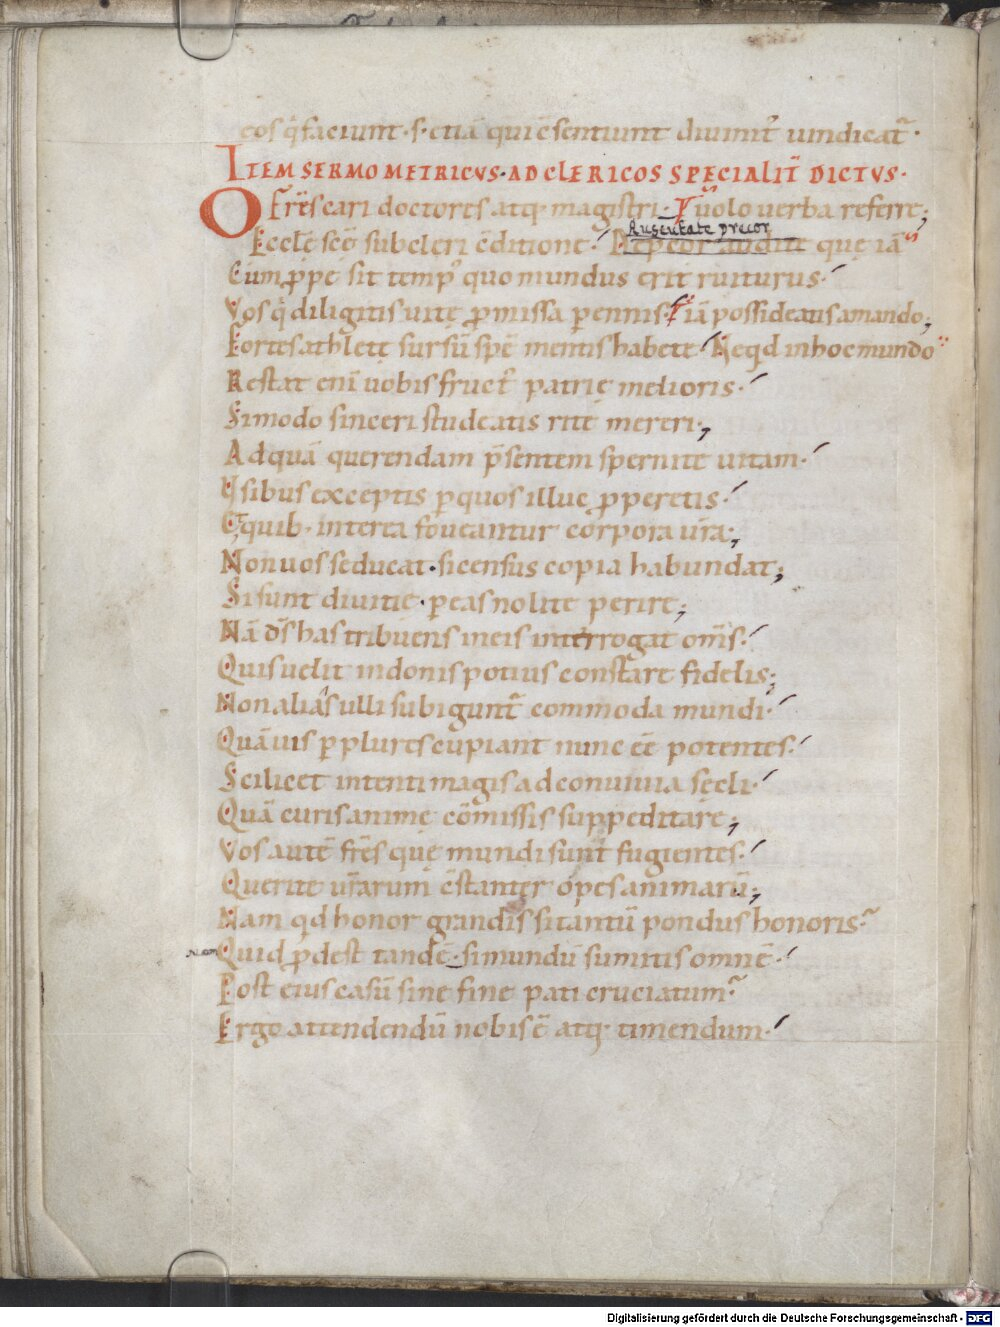 eos q̄ faciunt · s· etiā qui c̄sentiunt diuinit᷑ uindicat᷑ ·
ITEM SERMO METRICVS · AD CLERICOS SPECIALIT̄ DICTVS ·
O Fr̄es cari doctores atq; magistri · uolo uerba referre;
Auscultate precor
Eccle̜ sce̜ sub cleri c̄ditione · audite que̜ iā
Cum ꝓpe sit temp᷒ quo mundus erit ruiturus ·
Vos q̄ diligitis uite̜ ꝓmissa ꝑennis · iā possideatis amando;
Fortes athlete̜ sursū spē mentis habete · Neq̄d in hoc mundo
Restat eni uobis fruct᷒ patrie̜ melioris ·
Si modo sinceri studeatis rite mereri ·,
Ad quā querendam p̄sentem spernite uitam ·
Vsibus exceptis ꝑ quos illuc ꝓperetis ·
E quib· interea foueantur corpora ur̄a ·,
Non uos seducat · si census copia habundat;
Si sunt diuitie̜ · ꝑ eas nolite perire;
Nā d̄s has tribuens in eis interrogat om̄s ·
Quis uelit in donis potius constare fidelis;
Non alias ulli subigunt᷑ commoda mundi ·
Quāuis ꝑplures cupiant nunc eē potentes ·
Scilicet intenti magis ad conuiuia se̜cli ·
Quā curis anime̜ cōmissis suppeditare;
Vos autē fr̄es que̜ mundi sunt fugientes ·
Querite ur̄arum c̄stanter opes animarū;
Nam qd honor grandis sit antū pondus honoris ·
Nam
Quid ꝓdest tandē · si mundū sumitis omnē ·
Post eius casū sine fine pati cruciatum ·
Ergo attendendū nobis ē atq; timendum ·
Digitalisierung gefördert durch die Deutsche Forschungsgemeinschaft - DFG